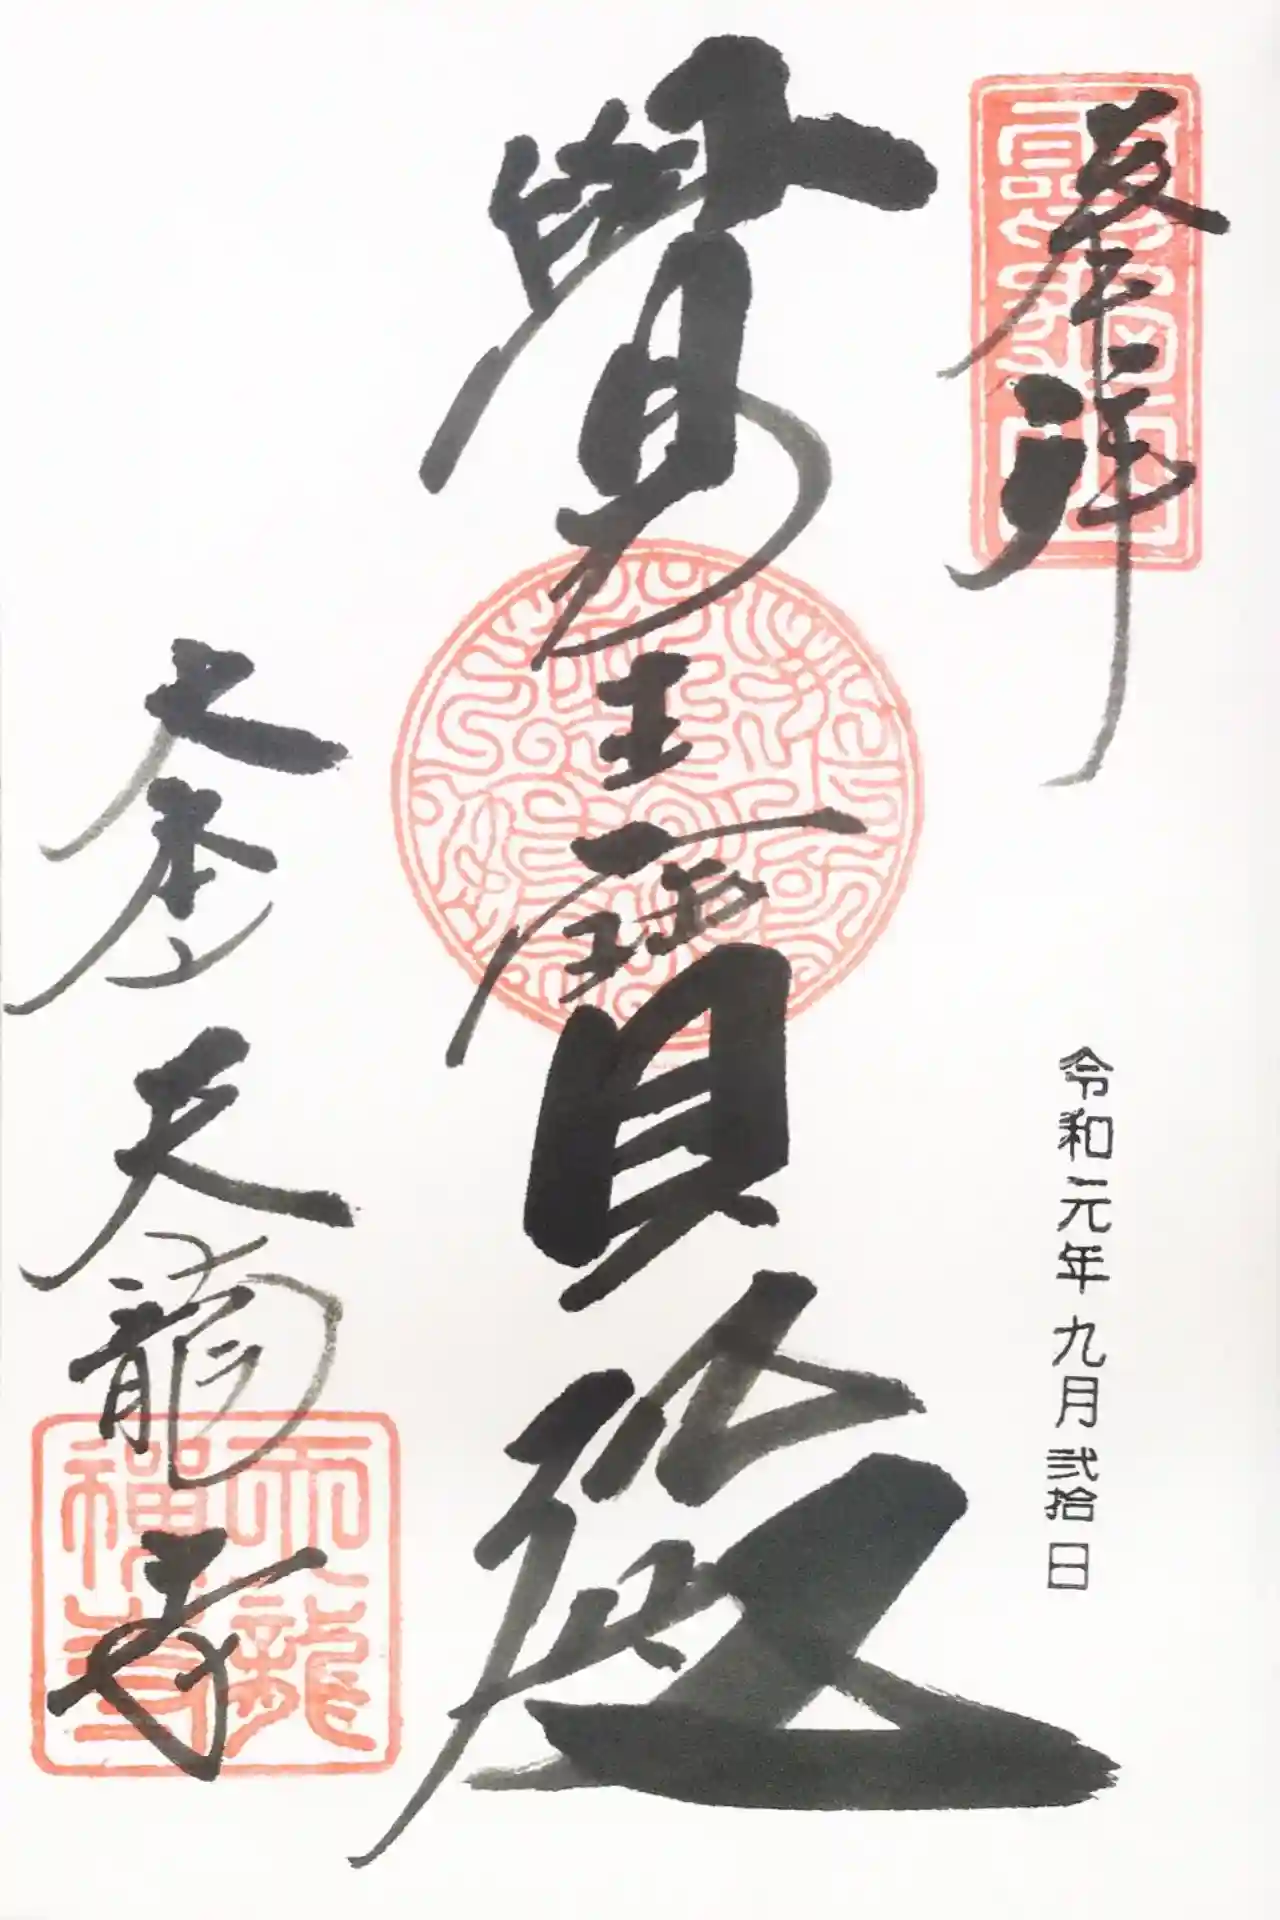 奉拝
靈龜山
令和元年九月弐拾日
覺王寶殿
大本山 天龍寺
天龍
禪寺